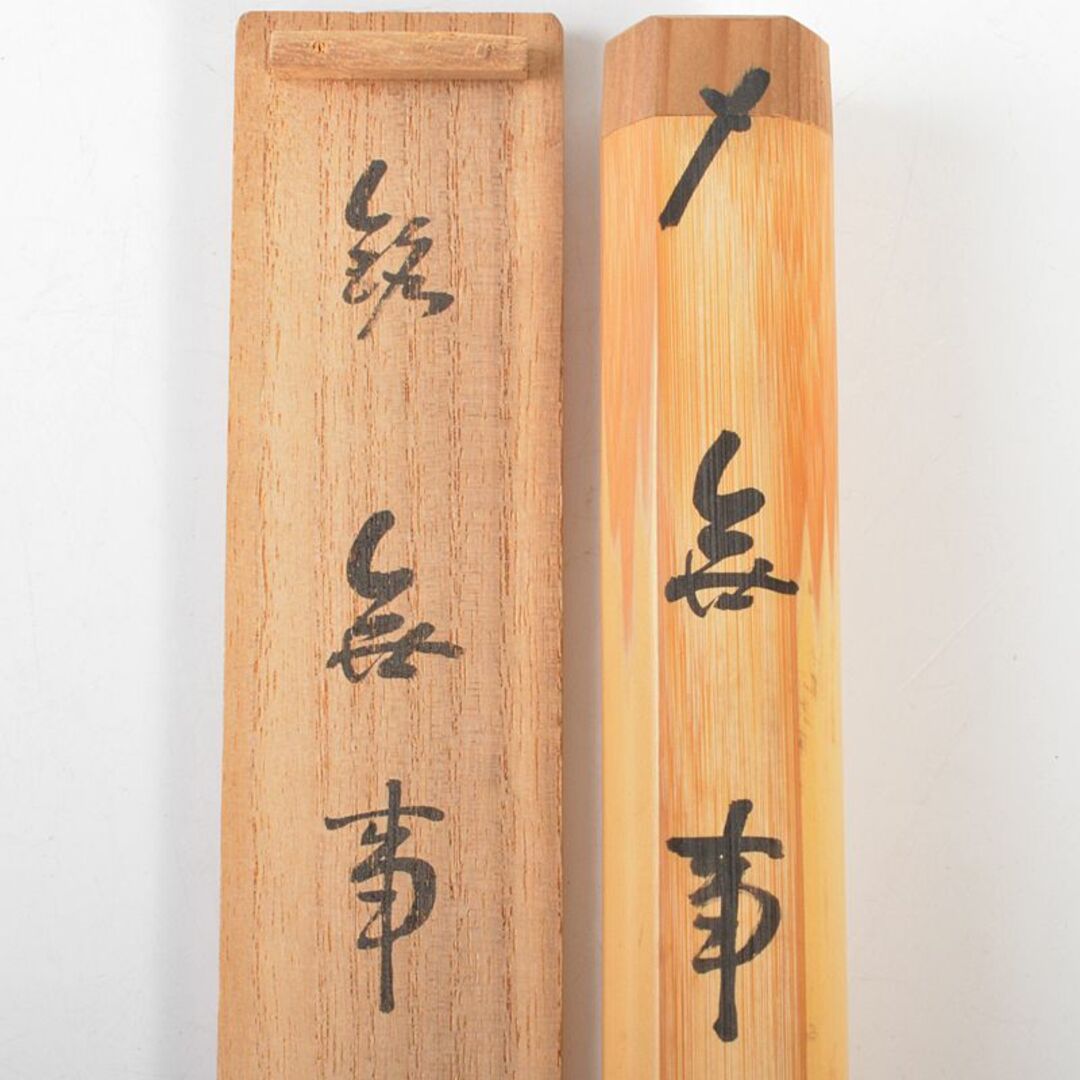 銘 無事
〆 無事